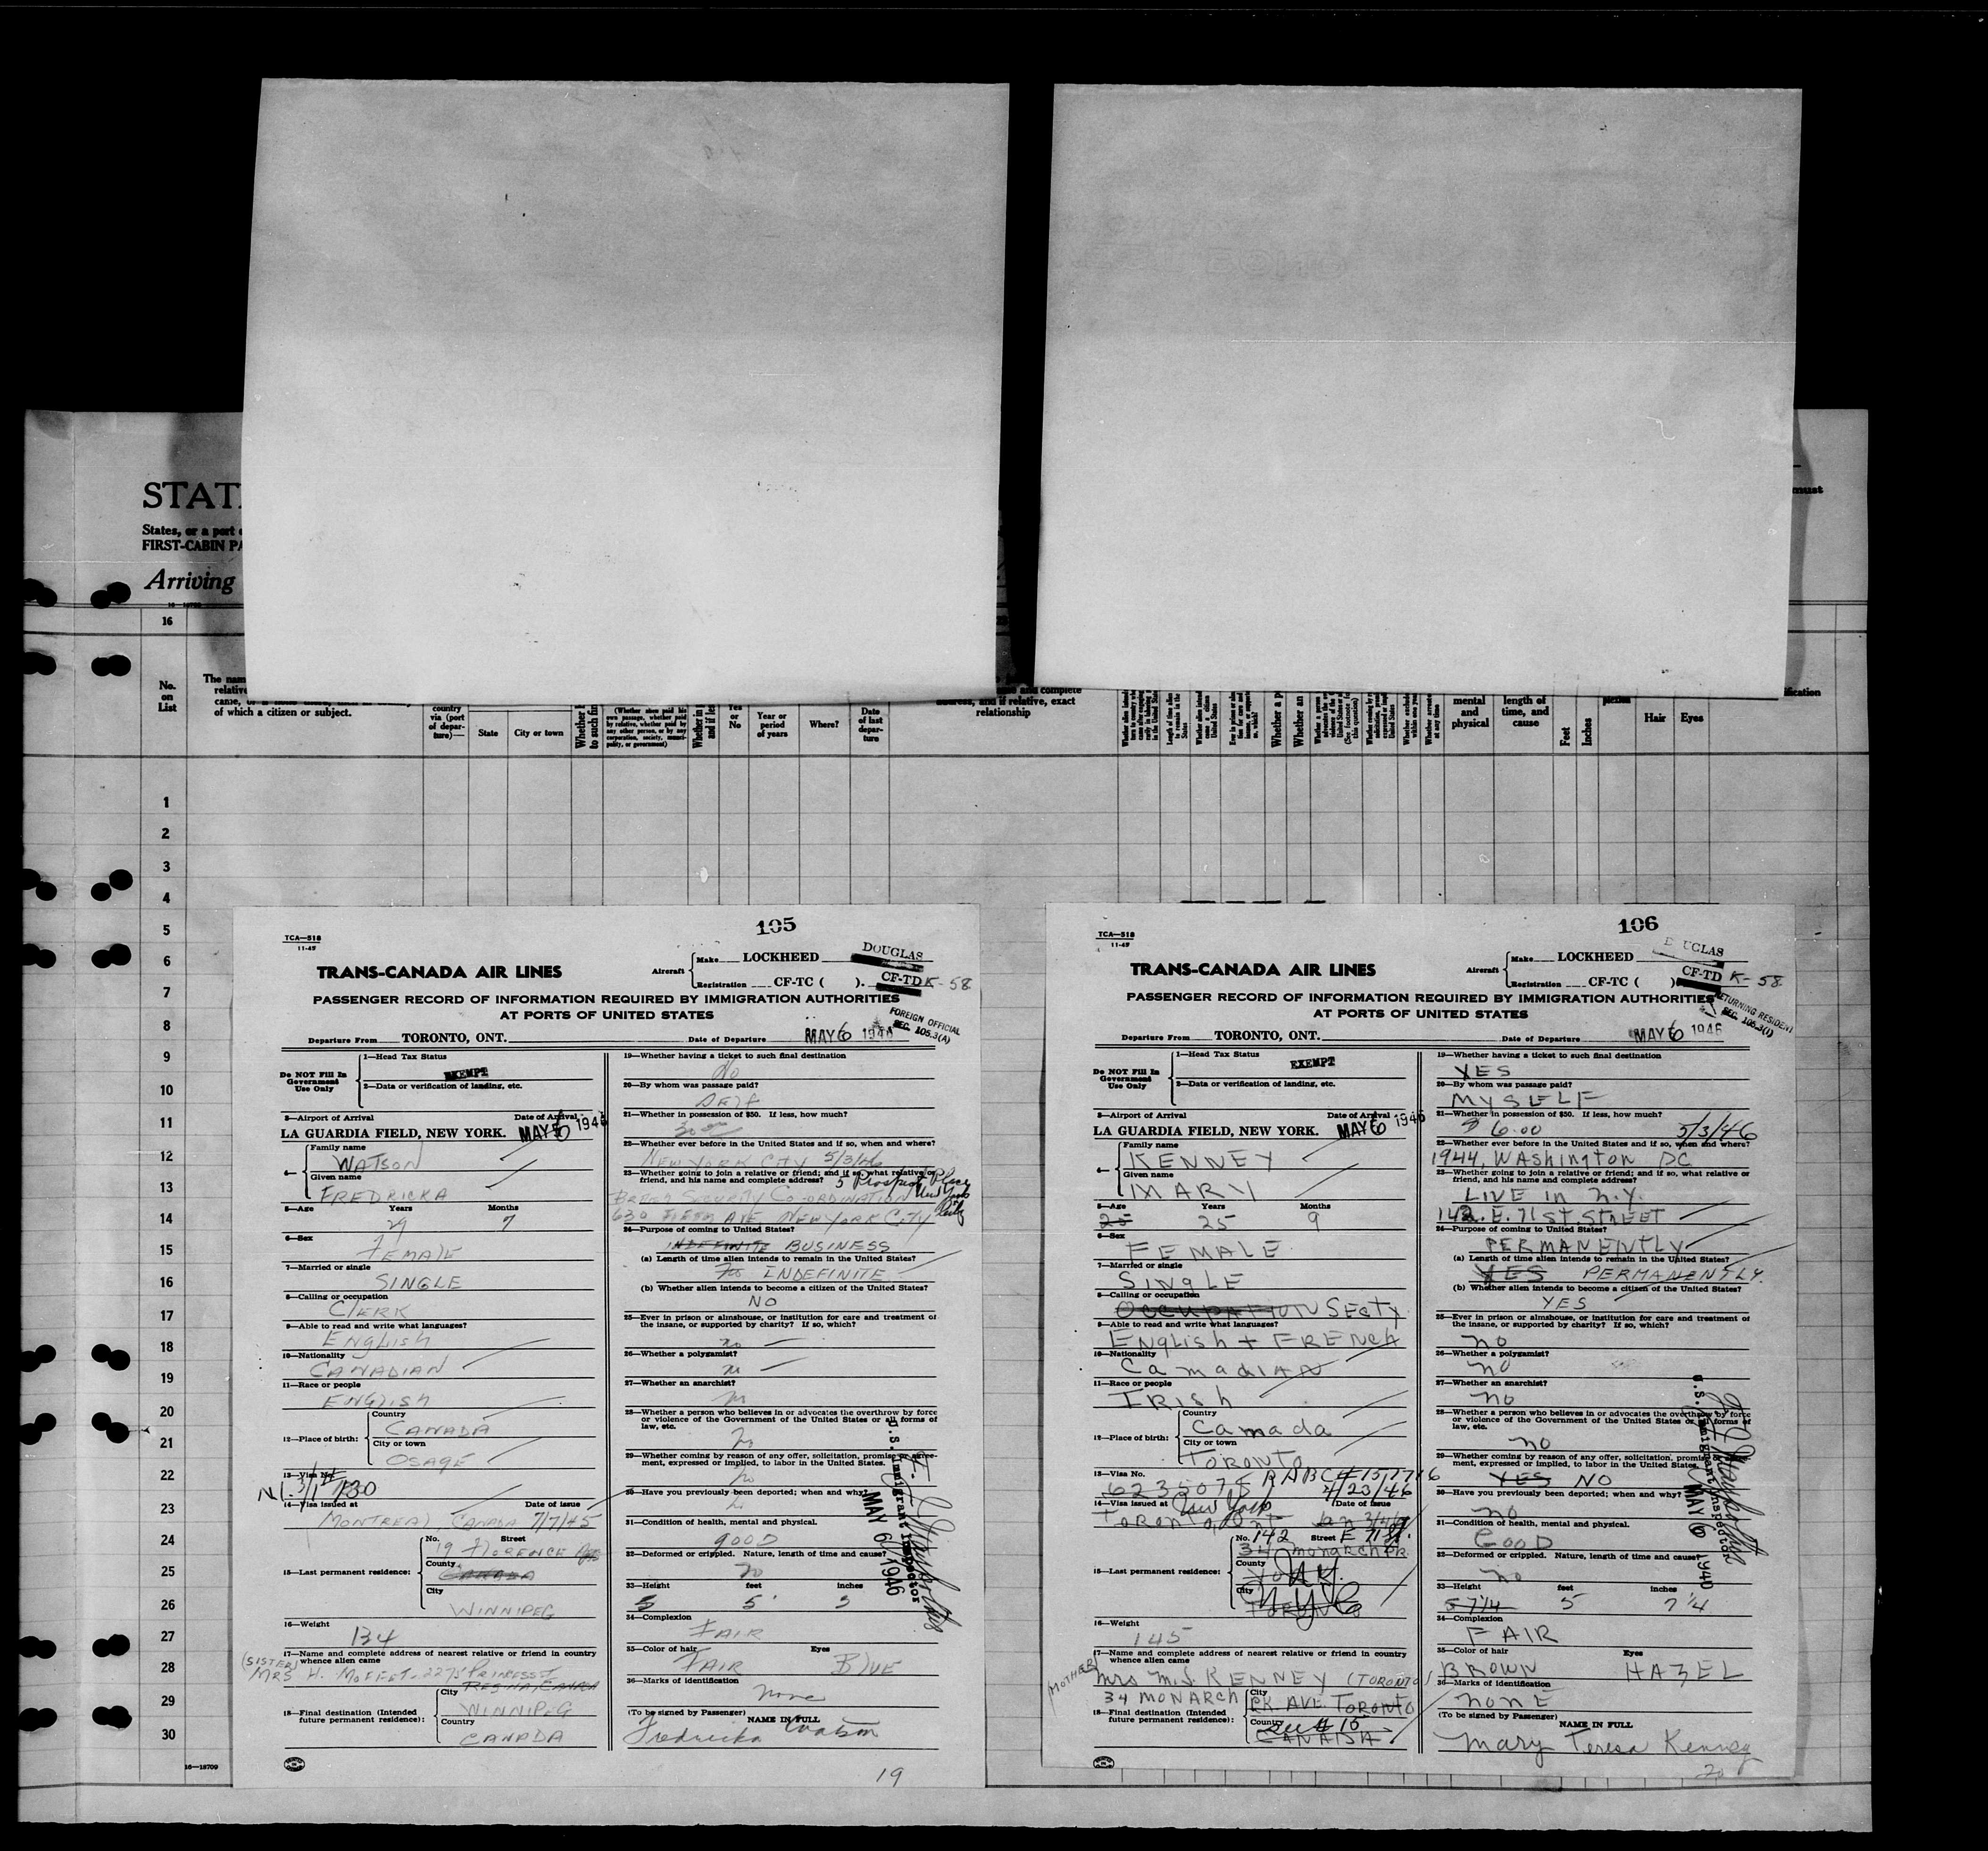 STAT
States, or a port
FIRST-CABIN PA
Arriving
must
16
No.
on
List
The nam
relative
came, or
of which a citizen or subject.
country
via (port
of depar-
ture)—
State
City or town
(Whether alien paid his
own passage, whether paid
by relative, whether paid by
any other person, or by any
corporation, society, munici-
pality, or government)
Yes
or
No
Year or
period
of years
Where?
Date
of last
depar-
ture
and complete
address, and if relative, exact
relationship
mental
and
physical
length of
time, and
cause
Feet
Inches
Hair
Eyes
1
2
3
4
5
6
7
8
9
10
11
12
13
14
15
16
17
18
19
20
21
22
23
24
25
26
27
28
29
30
16—18709
105
TCA—518
11-45
TRANS-CANADA AIR LINES
Aircraft
Make LOCKHEED DOUGLAS
Registration CF-TC ( ). CF-TD K-58
PASSENGER RECORD OF INFORMATION REQUIRED BY IMMIGRATION AUTHORITIES
AT PORTS OF UNITED STATES
FOREIGN OFFICIAL
SEC. 105.3(A)
Departure From TORONTO, ONT. Date of Departure MAY 6 1946
Do NOT Fill In
Government
Use Only
1—Head Tax Status
EXEMPT
2—Data or verification of landing, etc.
3—Airport of Arrival Date of Arrival
LA GUARDIA FIELD, NEW YORK. MAY 6 1946
4— Family name
WATSON
Given name
FREDRICKA
5—Age Years Months
29 7
6—Sex
FEMALE
7—Married or single
SINGLE
8—Calling or occupation
CLERK
9—Able to read and write what languages?
ENGLISH
10—Nationality
CANADIAN
11—Race or people
ENGLISH
12—Place of birth:
Country
CANADA
City or town
OSAGE
13—Visa No.
14—Visa issued at Date of issue
MONTREAL CANADA 7/7/45
15—Last permanent residence:
No. Street
19 FLORENCE
County
CANADA
City
WINNIPEG
16—Weight
134
17—Name and complete address of nearest relative or friend in country
whence alien came
(SISTER)
MRS H. MOFFET. 2275 PRINCESS
REGINA, CANADA
18—Final destination (Intended
future permanent residence):
City
WINNIPEG
Country
CANADA
19—Whether having a ticket to such final destination
No
20—By whom was passage paid?
SELF
21—Whether in possession of $50. If less, how much?
30 00
22—Whether ever before in the United States and if so, when and where?
NEW YORK CITY 5/3/46
23—Whether going to join a relative or friend; and if so, what relative or
friend, and his name and complete address? 5 Prospect Place
New York City
SECURITY CO-ORDINATION
630 FIFTH AVE NEW YORK CITY
24—Purpose of coming to United States?
INDEFINITE BUSINESS
(a) Length of time alien intends to remain in the United States?
INDEFINITE
(b) Whether alien intends to become a citizen of the United States?
NO
25—Ever in prison or almshouse, or institution for care and treatment of
the insane, or supported by charity? If so, which?
no
26—Whether a polygamist?
no
27—Whether an anarchist?
no
28—Whether a person who believes in or advocates the overthrow by force
or violence of the Government of the United States or all forms of
law, etc.
no
29—Whether coming by reason of any offer, solicitation, promise or agree-
ment, expressed or implied, to labor in the United States.
no
30—Have you previously been deported; when and why?
31—Condition of health, mental and physical.
GOOD
32—Deformed or crippled. Nature, length of time and cause?
no
33—Height feet inches
5 5 3
34—Complexion
FAIR
35—Color of hair Eyes
FAIR BLUE
36—Marks of identification
none
(To be signed by Passenger) NAME IN FULL
Fredricka Watson
U.S. Immigrant Inspector
MAY 6 1946
19
106
TCA—518
11-45
TRANS-CANADA AIR LINES
Aircraft
Make LOCKHEED DOUGLAS
Registration CF-TC ( ) CF-TD K-58
PASSENGER RECORD OF INFORMATION REQUIRED BY IMMIGRATION AUTHORITIES
AT PORTS OF UNITED STATES
RETURNING RESIDENT
SEC. 105.3(1)
Departure From TORONTO, ONT. Date of Departure MAY 6 1946
Do NOT Fill In
Government
Use Only
1—Head Tax Status
EXEMPT
2—Data or verification of landing, etc.
3—Airport of Arrival Date of Arrival
LA GUARDIA FIELD, NEW YORK. MAY 6 1946
4— Family name
KENNEY
Given name
MARY
5—Age Years Months
25 25 9
6—Sex
FEMALE
7—Married or single
SINGLE
8—Calling or occupation
OCCUPATION SECTY
9—Able to read and write what languages?
ENGLISH + FRENCH
10—Nationality
CANADIAN
11—Race or people
IRISH
12—Place of birth:
Country
Canada
City or town
TORONTO
13—Visa No.
14—Visa issued at New York Date of issue 4/23/46
Toronto, Ont
15—Last permanent residence:
No. 142 Street E 71 St.
34 monarch PK
County
YORK
City
N.Y.C.
TORONTO
16—Weight
145
17—Name and complete address of nearest relative or friend in country
whence alien came
(MOTHER)
Mrs M.J. KENNEY (TORONTO)
34 MONARCH PK. AVE. TORONTO
18—Final destination (Intended
future permanent residence):
City
Country
See # 15
CANADA
19—Whether having a ticket to such final destination
YES
20—By whom was passage paid?
MYSELF
21—Whether in possession of $50. If less, how much?
$ 6.00 5/3/46
22—Whether ever before in the United States and if so, when and where?
1944, WASHINGTON DC
23—Whether going to join a relative or friend; and if so, what relative or
friend, and his name and complete address?
LIVE IN N.Y.
142. E. 71 ST STREET
24—Purpose of coming to United States?
PERMANENTLY
(a) Length of time alien intends to remain in the United States?
YES PERMANENTLY.
(b) Whether alien intends to become a citizen of the United States?
YES
25—Ever in prison or almshouse, or institution for care and treatment of
the insane, or supported by charity? If so, which?
no
26—Whether a polygamist?
no
27—Whether an anarchist?
no
28—Whether a person who believes in or advocates the overthrow by force
or violence of the Government of the United States or all forms of
law, etc.
no
29—Whether coming by reason of any offer, solicitation, promise or agree-
ment, expressed or implied, to labor in the United States.
YES NO
30—Have you previously been deported; when and why?
no
31—Condition of health, mental and physical.
GOOD
32—Deformed or crippled. Nature, length of time and cause?
no
33—Height feet inches
5 7 1/4 5 7 1/4
34—Complexion
FAIR
35—Color of hair Eyes
BROWN HAZEL
36—Marks of identification
NONE
(To be signed by Passenger) NAME IN FULL
Mary Teresa Kenney
U.S. Immigrant Inspector
MAY 6 1946
20